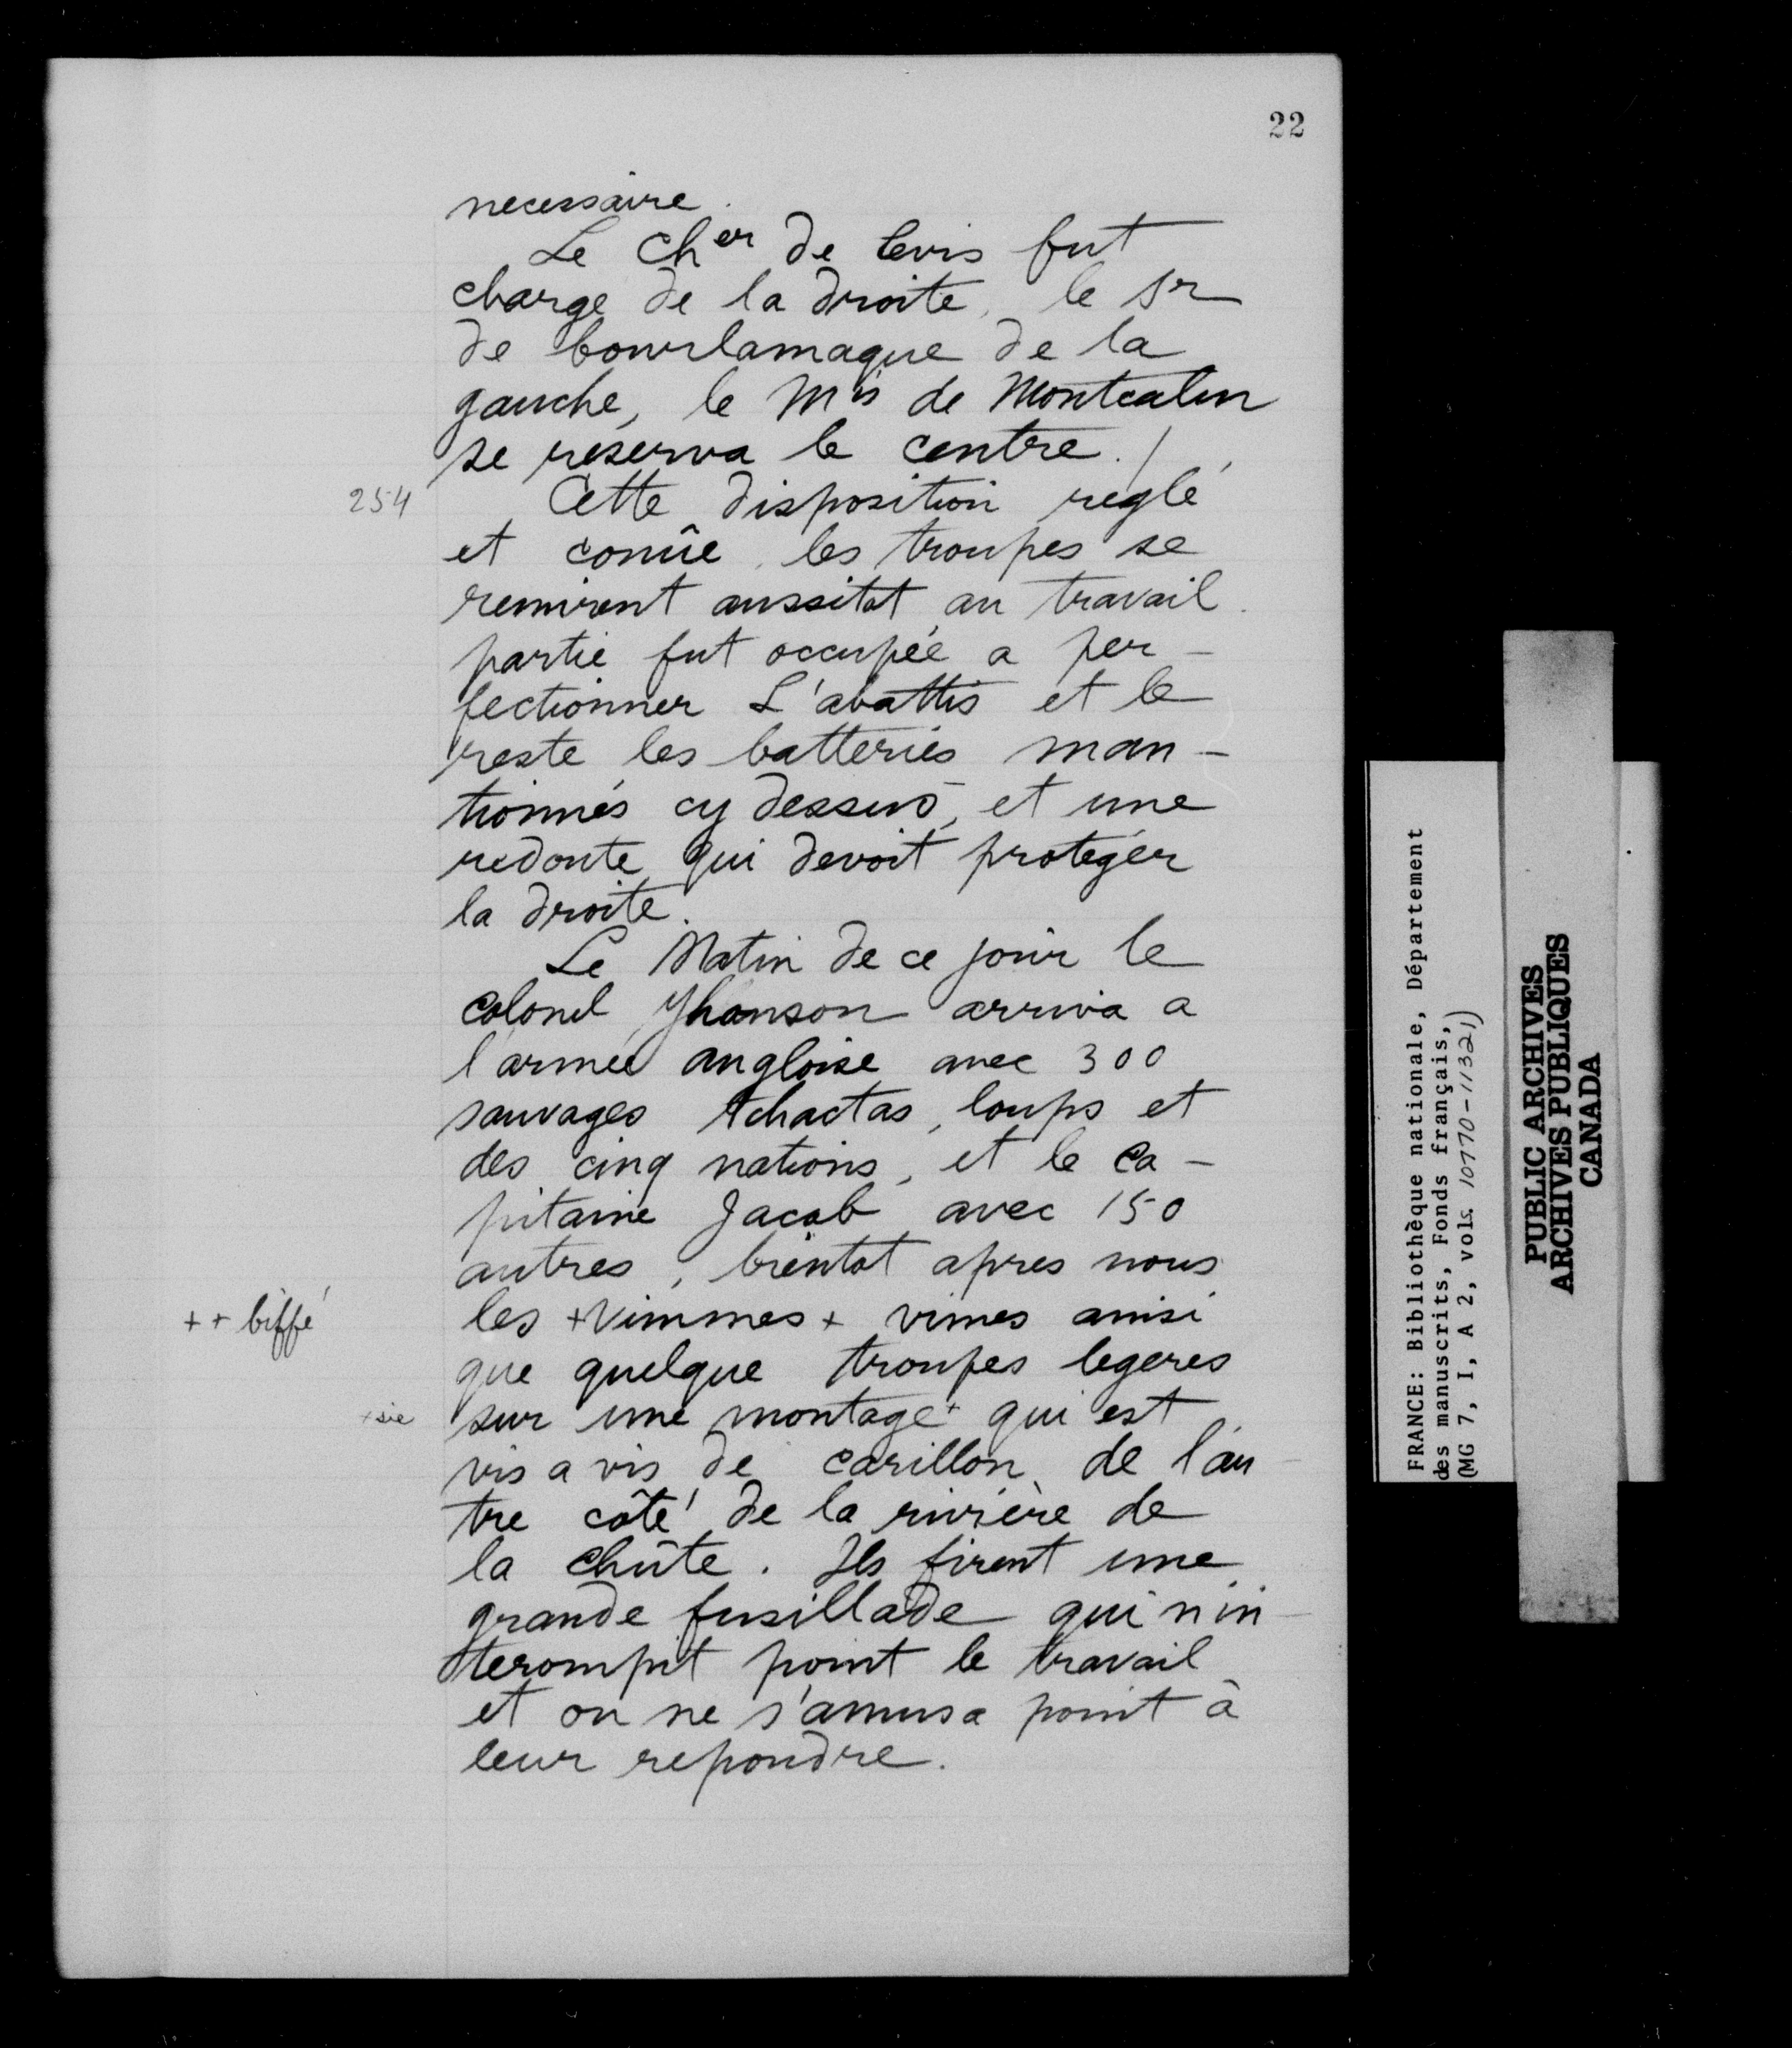 22
necessaire.
Le Cher de levis fut
charge de la droite, le Sr
de bourlamaque de la
gauche, le Mis de Montcalm
se reserva le centre. /
254
Cette disposition reglé
et conûe, les troupes se
remirent aussitot au travail.
partie fut occupée a per-
fectionner L'abattis et le
reste les batteries man-
tionnés cy dessus, et une
redoute qui devoit proteger
la droite.
Le Matin de ce jour le
Colonel Jhonson arriva a
l'armée angloise avec 300
sauvages tchactas, loups et
des cinq nations, et le Ca-
pitaine Jacob avec 150
autres, bientot apres nous
++ biffé
les +vimmes+ vimes ainsi
que quelque troupes legeres
+sic
sur une montage+ qui est
vis a vis de Carillon, de l'au-
tre côté de la rivière de
la Chûte. Ils firent une
grande fusillade qui n'in-
terompit point le travail
et on ne s'amusa point à
leur repondre.
FRANCE: Bibliothèque nationale, Département
des manuscrits, Fonds français,
(MG 7, I, A 2, vols. 10770-11321)
PUBLIC ARCHIVES
ARCHIVES PUBLIQUES
CANADA